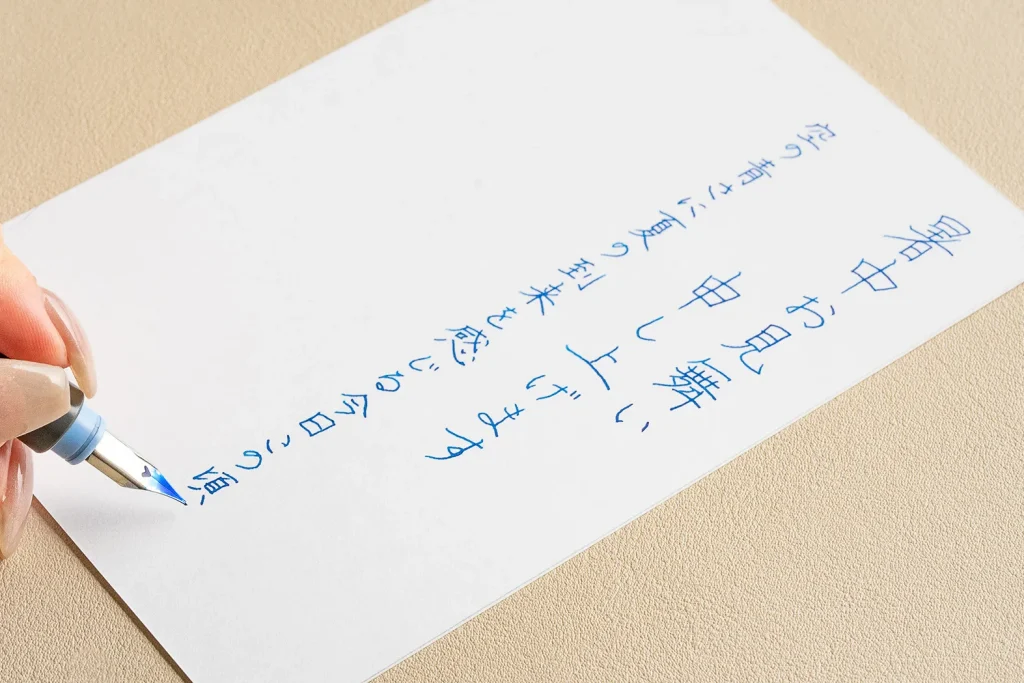 暑中お見舞い
申し上げます
空の青さに夏の到来を感じる今日この頃